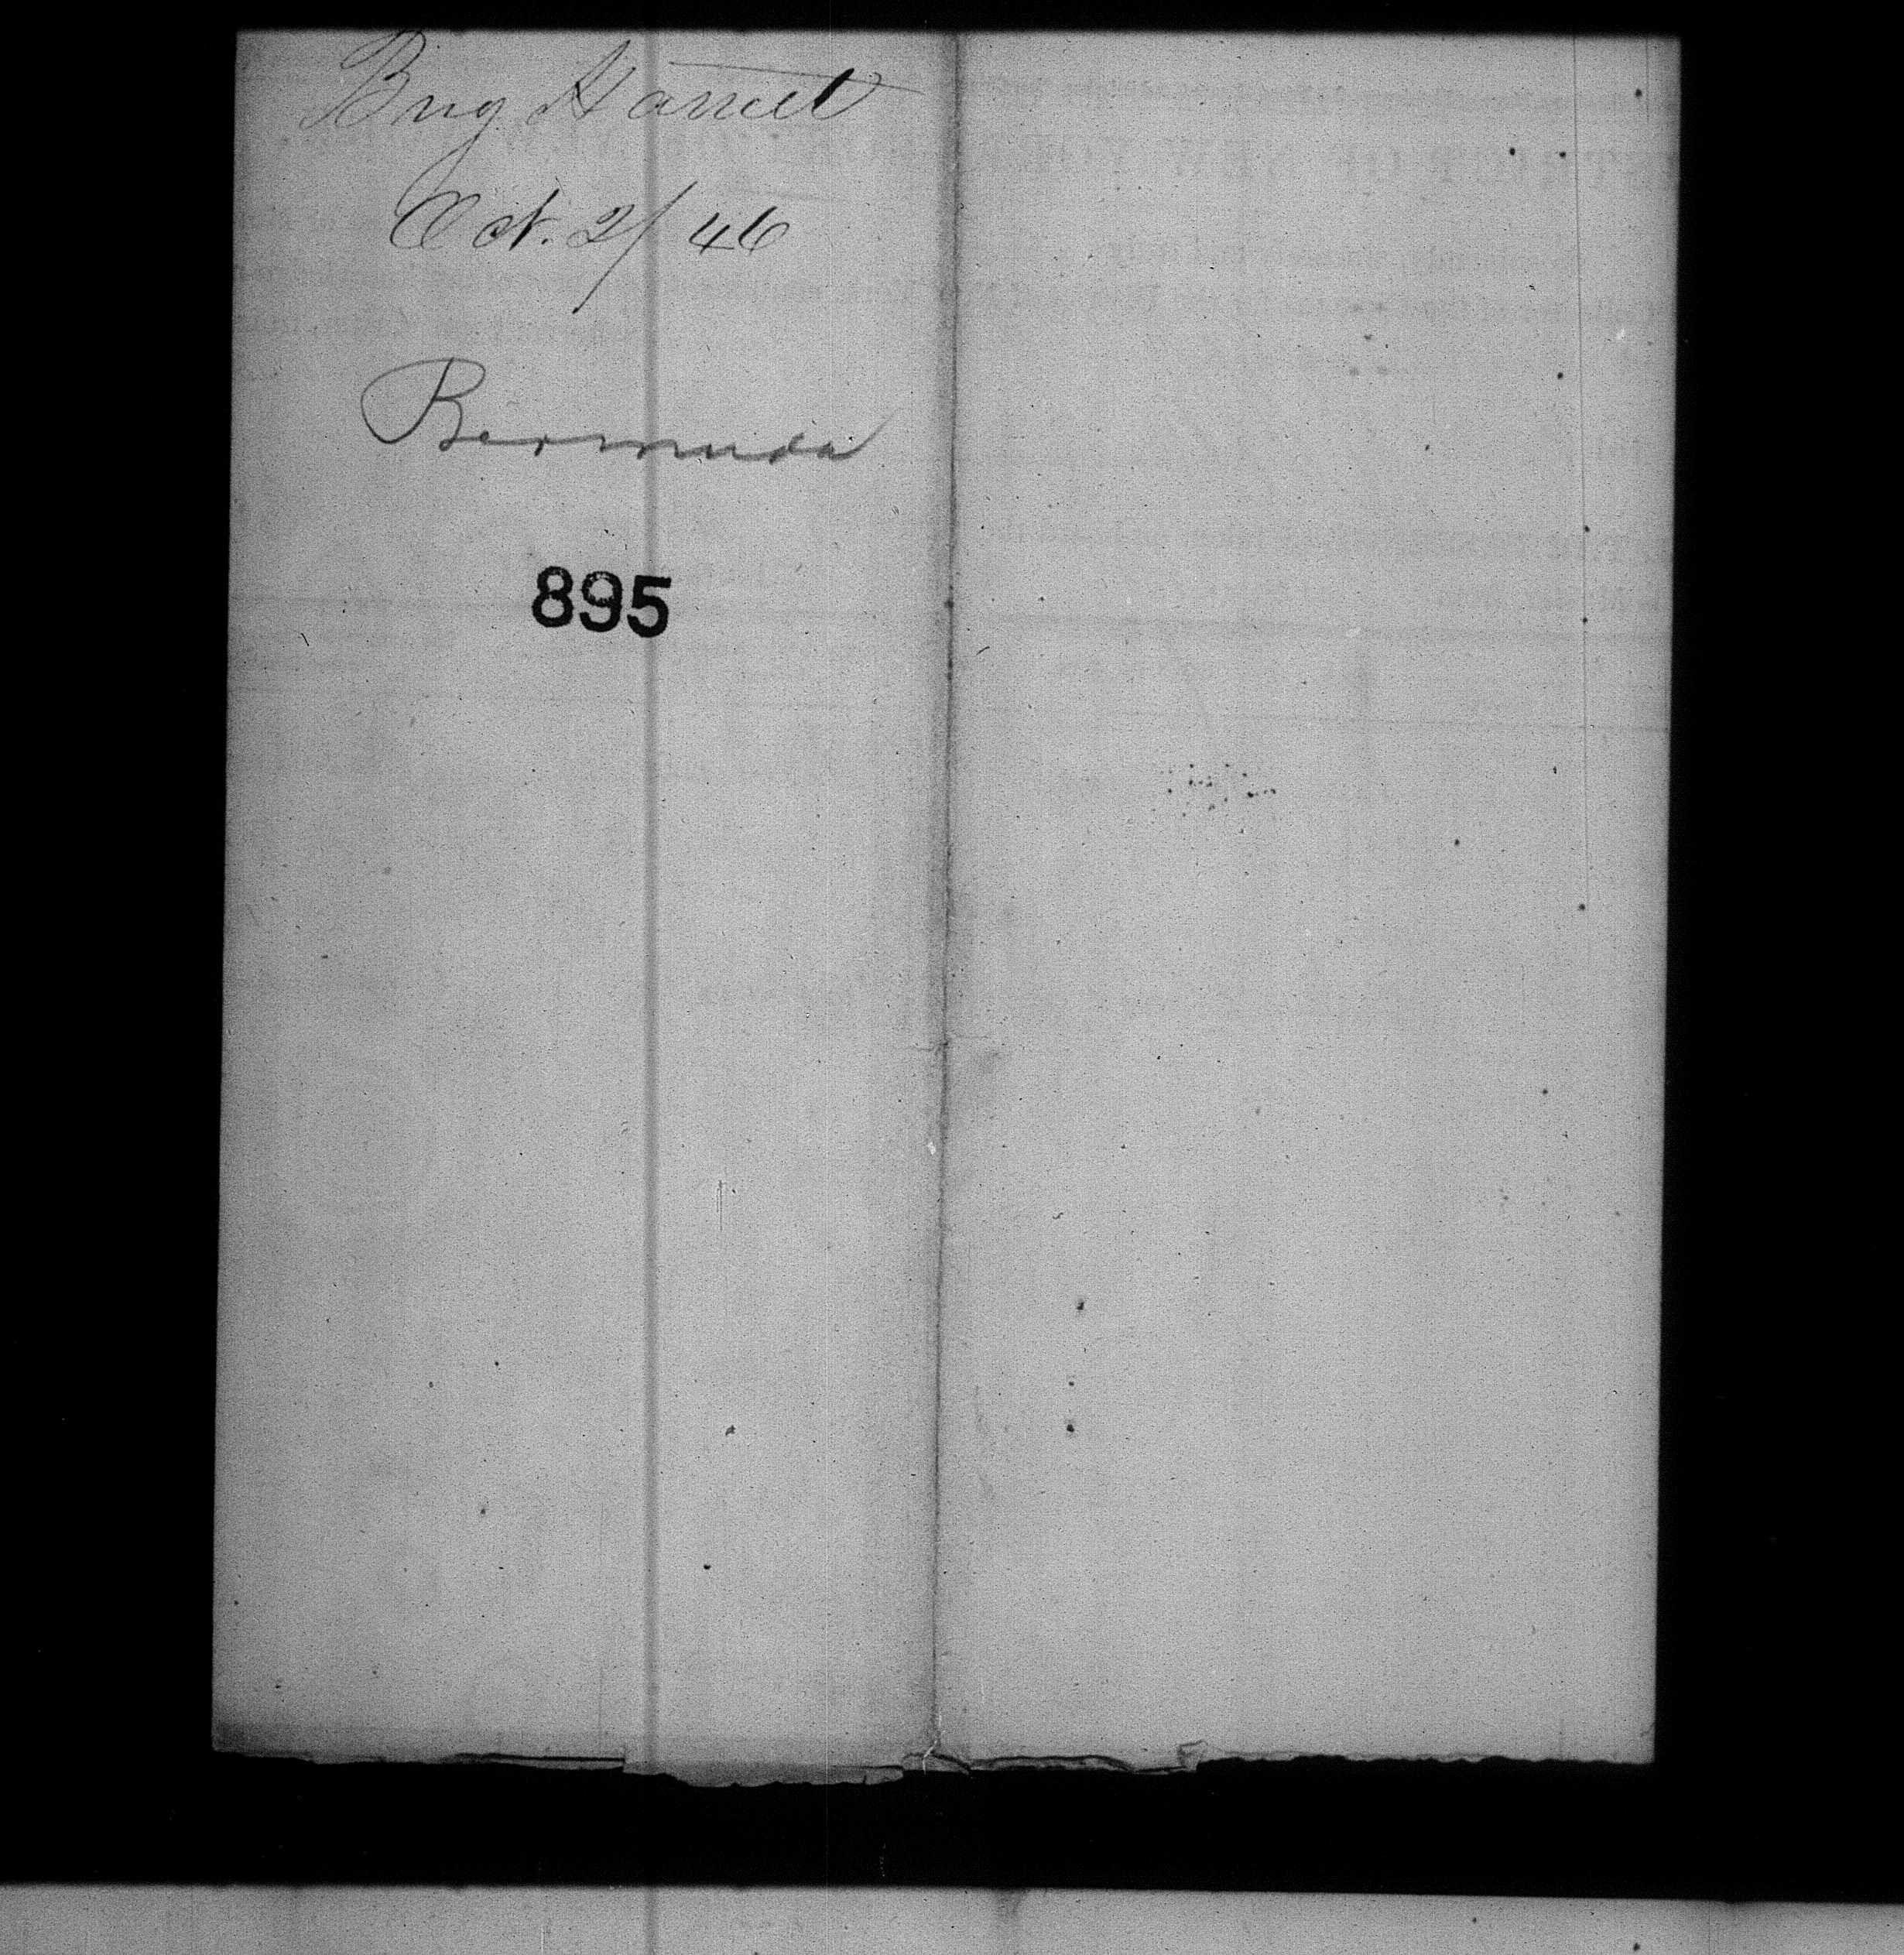 Brig Harriet
Oct. 2/46
Bermuda
895